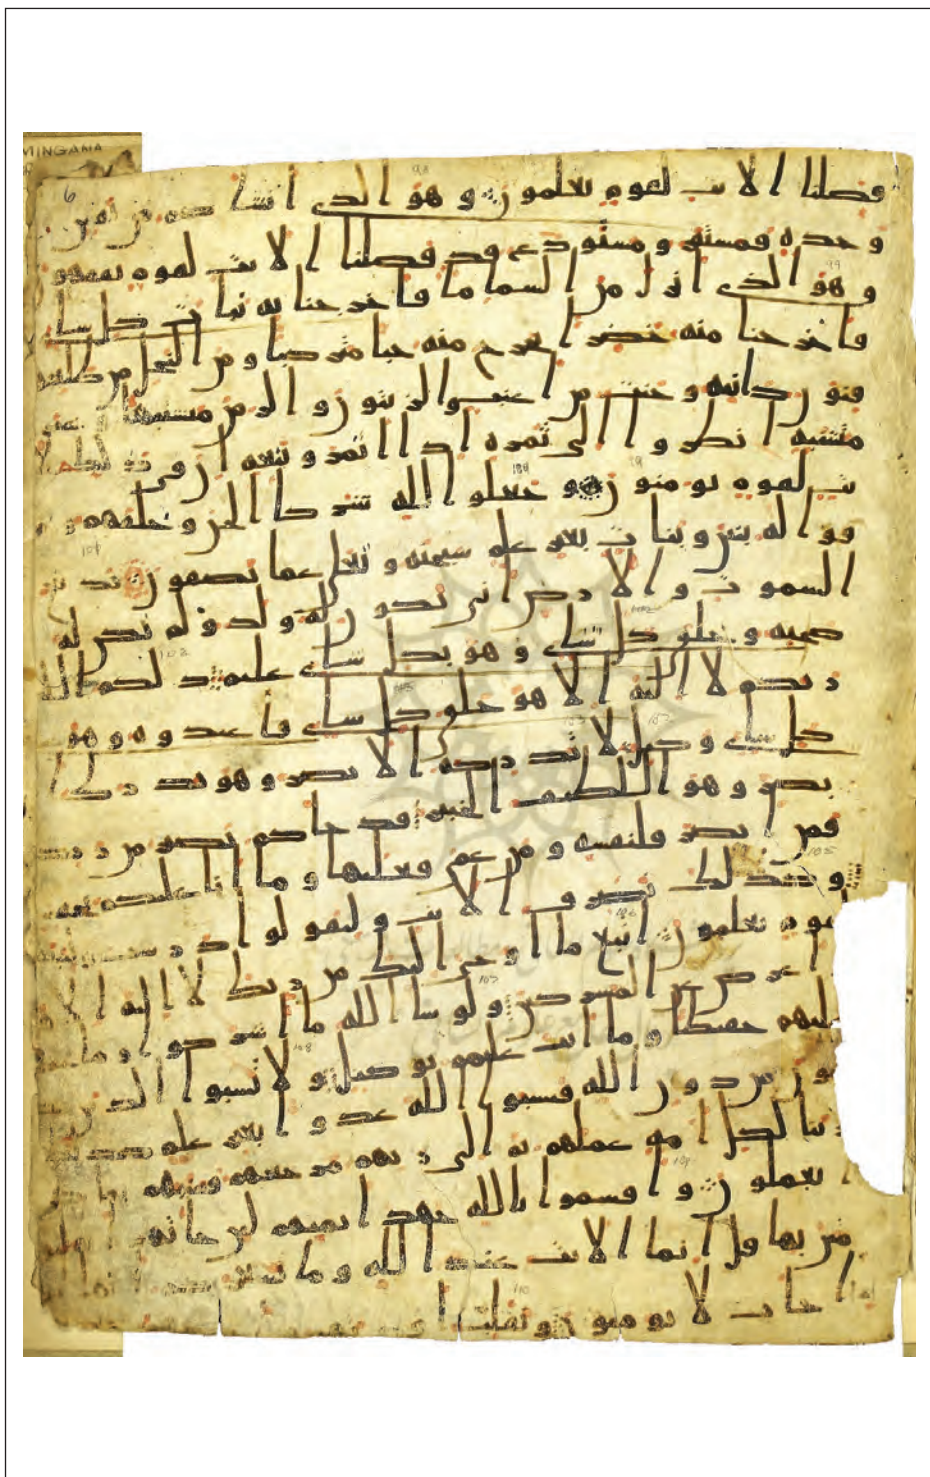 MINGANA
6
فصلنا الايت لقوم يعلمون وهو الذي انشاكم من نفس
وحده فمستقر ومستودع قد فصلنا الايت لقوم يفقهو
وهو الذي انزل من السما ما فاخرجنا به نبات كل شاي
فاخرجنا منه خضرا نخرج منه حبا متركبا ومن النخل من طلعها
قنون دانيه وجنت من اعنب والزيتون والرمن مشتبها وغير
متشبه انظروا الى ثمره اذا اثمر وينعه ان في ذلكم لا
يت لقوم يومنون وجعلوا لله شركا الجن وخلقهم و
قوا له بنين وبنات بغير علم سبحنه وتعلى عما يصفون بديع
السموت والارض انى يكون له ولد ولم تكن له
صحبه وخلق كل شاي وهو بكل شاي عليم ذلكم الله
ربكم لا اله الا هو خلق كل شاي فاعبدوه وهو
كل شاي وكيل لا تدركه الابصر وهو يدرك الا
بصر وهو اللطيف الخبير قد جاكم بصر من ربكم
فمن ابصر فلنفسه ومن عمي فعليها وما انا عليكم
وكذلك نصرف الايت وليقولوا درست ولنبينه
لقوم يعلمون اتبع ما اوحي اليك من ربك لا اله الا
عرض عن المشركين ولو شا الله ما اشركوا وما
عليهم حفيظا وما انت عليهم بوكيل ولا تسبوا الذين
من دون الله فيسبوا الله عدوا بغير علم كذلك
ينا لكل امه عملهم ثم الى ربهم مرجعهم فينبهم بما
يعملون واقسموا بالله جهد ايمنهم لين جاتهم
من بها قل انما الايت عند الله وما يشعركم انها
اذا جات لا يومنون ونقلب